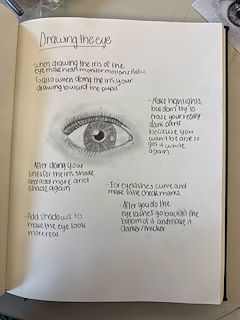 Drawing the eye
when drawing the iris of the
eye make heart monitor motions
also when doing the iris, your
drawing toward the pupil
- Make highlights,
but don't try to
erase your really
dark parts
because you
won't be able to
get it white
again.
- After doing your
lines for the iris shade
and add more and
shade again
- For eyelashes curve and
make little check marks
- After you do the
eye lashes go back to the
bottom of it and make it
darker/thicker
- Add shadows to
make the eye look
more real